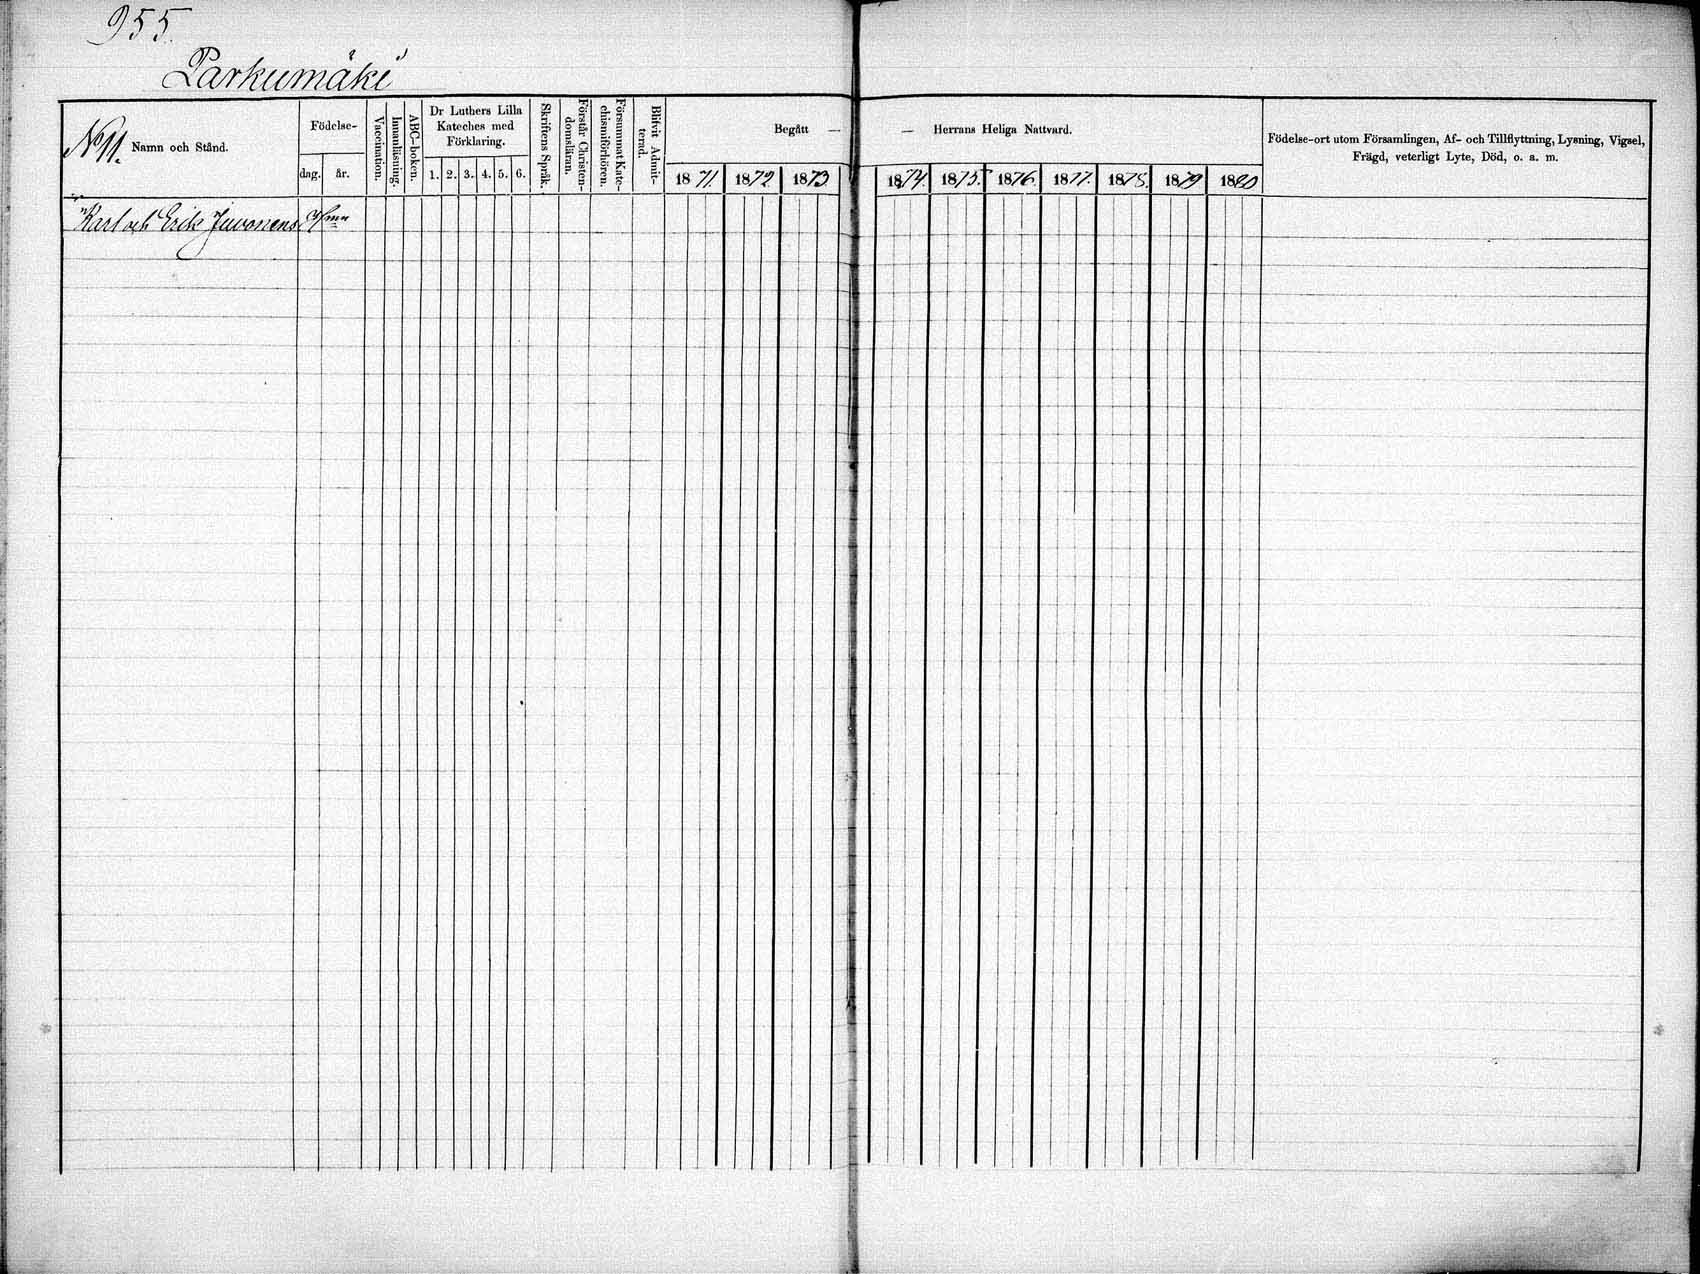 955.
Parkumäki
No 11. Namn och Stånd.
Födelse-
dag. år.
Vaccination.
Innanläsning.
ABC-boken.
Dr Luthers Lilla
Kateches med
Förklaring.
1. 2. 3. 4. 5. 6.
Skriftens Språk.
Förstår Christen-
domsläran.
Försummat Kate-
chismiförhören.
Blifvit Admit-
terad.
Begått — — Herrans Heliga Nattvard.
1871. 1872. 1873. 1874. 1875. 1876. 1877. 1878. 1879 1880
Födelse-ort utom Församlingen, Af- och Tillflyttning, Lysning, Vigsel,
Frägd, veterligt Lyte, Död, o. a. m.
Karl och Erik Juvonens